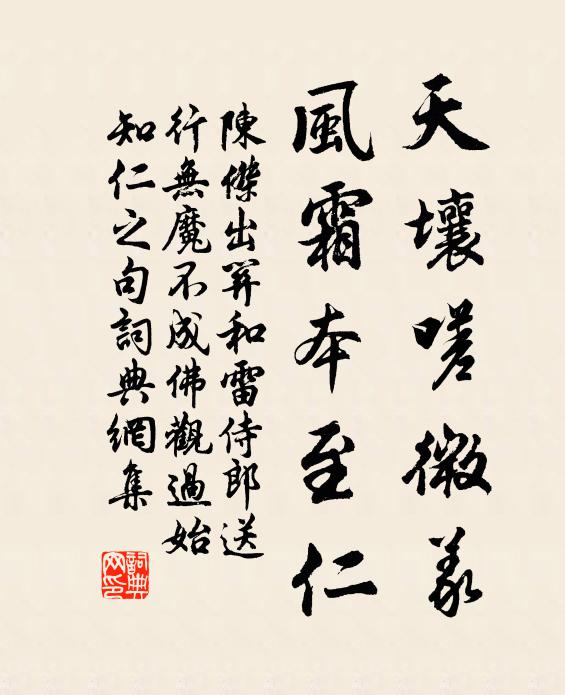 天壤嗟微義
風霜本至仁
陳傑出郊和雷侍郎送
行無魔不成佛觀過始
知仁之句詞典網集
詞典网印